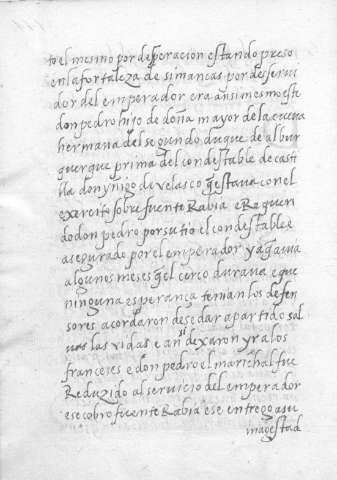 to el mesmo por desperacion estando preso
en la fortaleza de simancas por deserui
dor del emperador era ansi mesmo este
don pedro hijo de doña mayor de la cueua
hermana del segundo duque de albur
querque prima del condestable de casti
lla don ynigo de velasco q̃ estaua con el
exercito sobre fuente Rabia e Requeri
do don pedro por su tio el condestable e
asegurado por el emperador y a q̃ auia
algunos meses q̃ el cerco duraua e que
ninguna esperança tenian los defen
sores acordaron de se dar a partido sal
uas las vidas e an si dexaron yr a los
franceses e don pedro el marichal fue
Reduzido al seruicio del emperador
e se cobro fuente Rabia e se entrego a su
magestad